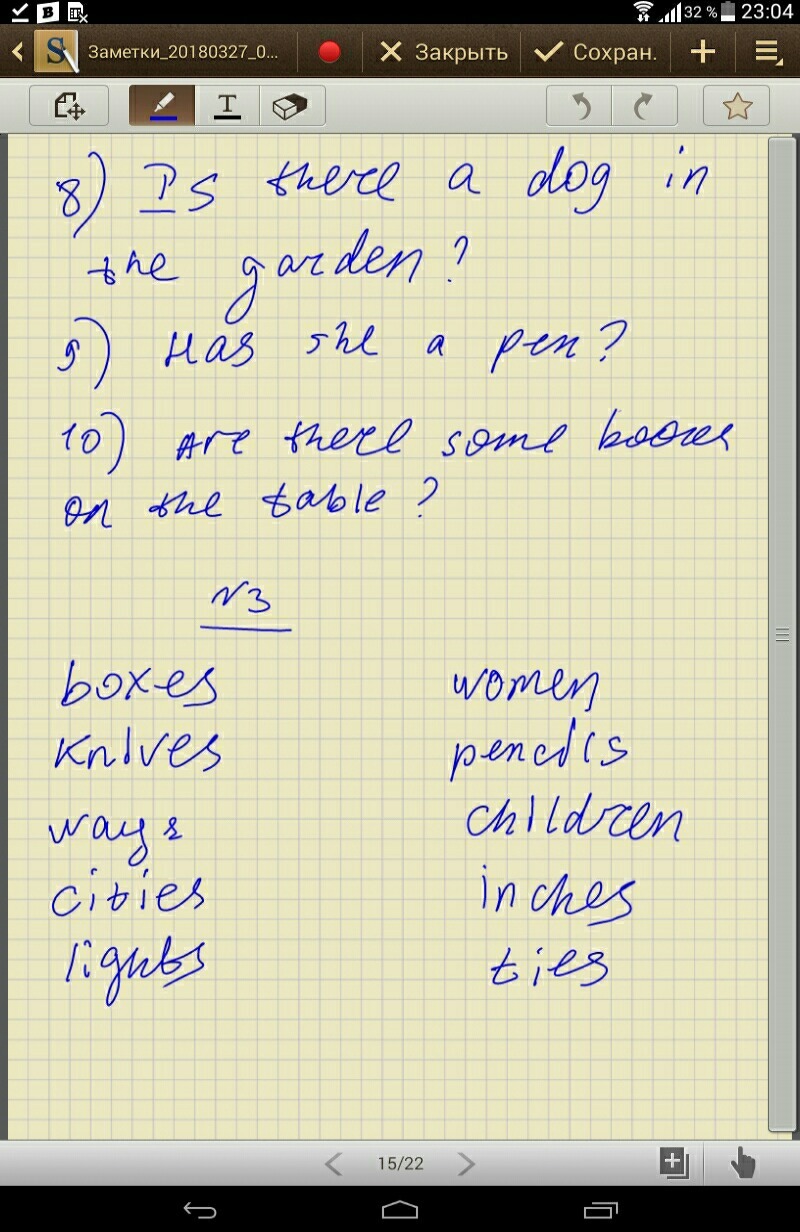 32 % 23:04
Заметки_20180327_0... Закрыть Сохран.
T
8) Is there a dog in
the garden?
9) Has she a pen?
10) Are there some books
on the table?
N3
boxes women
knives pencils
ways children
cities inches
lights ties
15/22